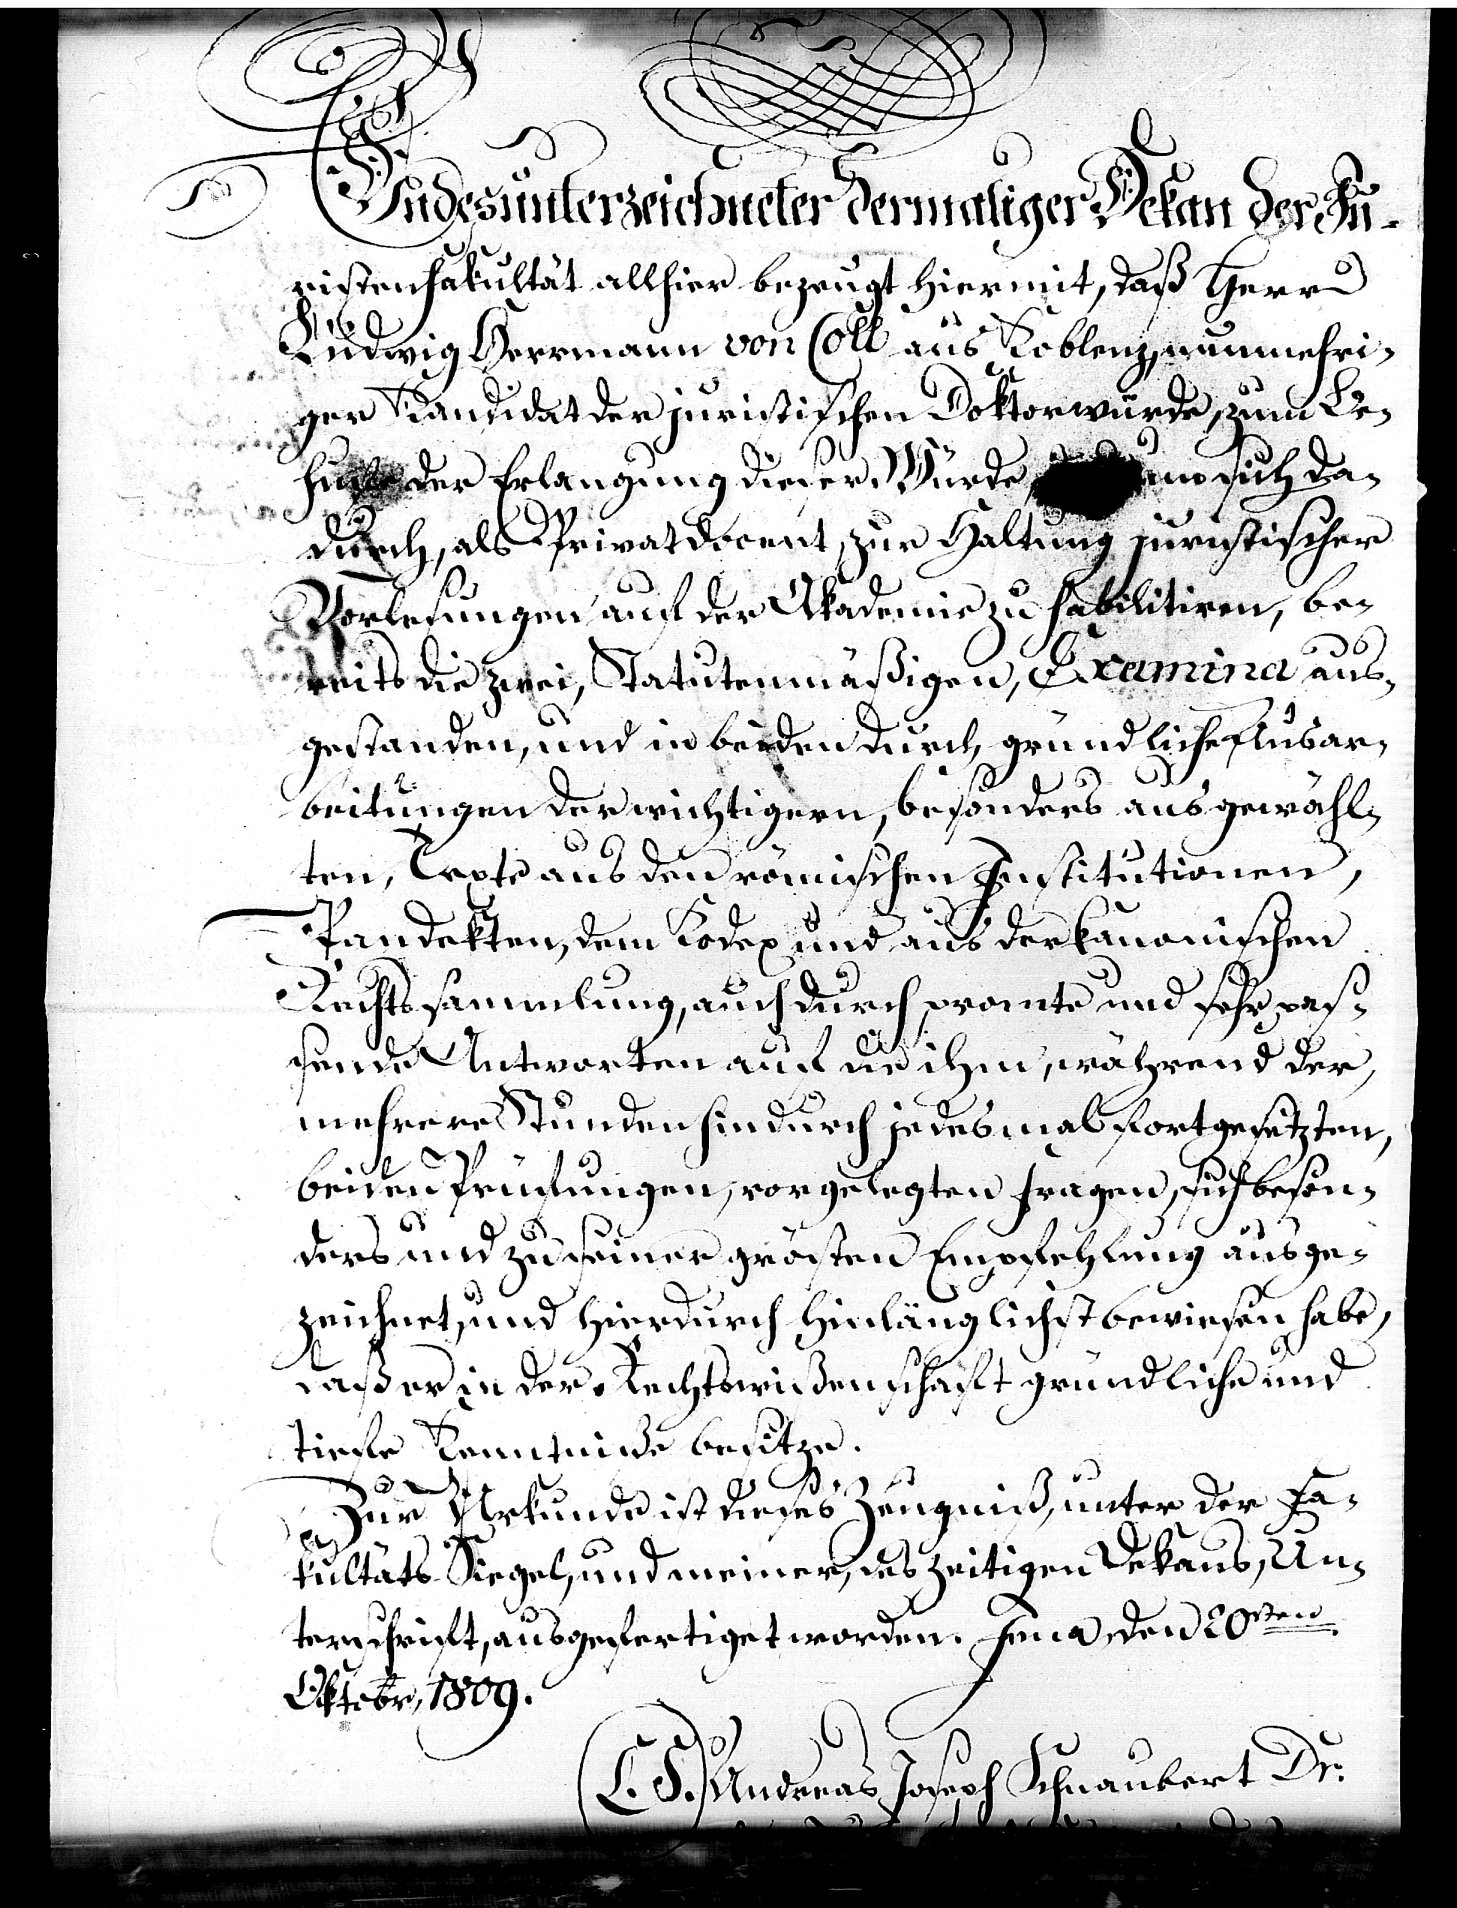 Endesunterzeichneter dermaliger Dekan der Ju-
ristenfakultät allhier bezeugt hiermit, daß Herr
Ludwig Herrmann von Coll aus Koblenz, nunmehri-
ger Kandidat der juristischen Doktorwürde, zum Be-
hufe der Erlangung dieser Würde, um sich da-
durch, als Privatdocent, zur Haltung juristischer
Vorlesungen auf der Akademie zu habilitiren, be-
reits die zwei, Statutenmäßigen, Examina aus-
gestanden, und in beiden durch gründliche Ausar-
beitungen der wichtigern, besonders ausgewähl-
ten, Texte aus den römischen Institutionen,
Pandekten, dem Kodex und aus der kanonischen
Rechtssammlung, auch durch promte und sehr pas-
sende Antworten auf die ihm, während der,
mehrere Stunden hindurch jedesmal fortgesetzten,
beiden Prüfungen, vorgelegten Fragen, sich beson-
ders und zu seiner grösten Empfehlung ausge-
zeichnet, und hierdurch hinlänglichst bewiesen habe,
daß er in der Rechtswißenschaft gründliche und
tiefe Kenntniße besitze.
Zur Urkunde ist dieses Zeugniß, unter der Fa-
kultäts Siegel, und meiner, des zeitigen Dekans, Un-
terschrift, ausgefertiget worden. Jena, den 20sten
Oktobr, 1809.
(L. S.) Andreas Joseph Schnaubert Dr.